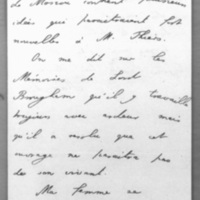 de Morrow contient plusieurs
idées qui paraîtraient fort
nouvelles à M. Thiers.
On me dit sur les
Mémoires de Lord
Brougham qu'il y travaille
toujours avec ardeur mais
qu'il a résolu que cet
ouvrage ne paraîtra pas
de son vivant.
Ma femme se